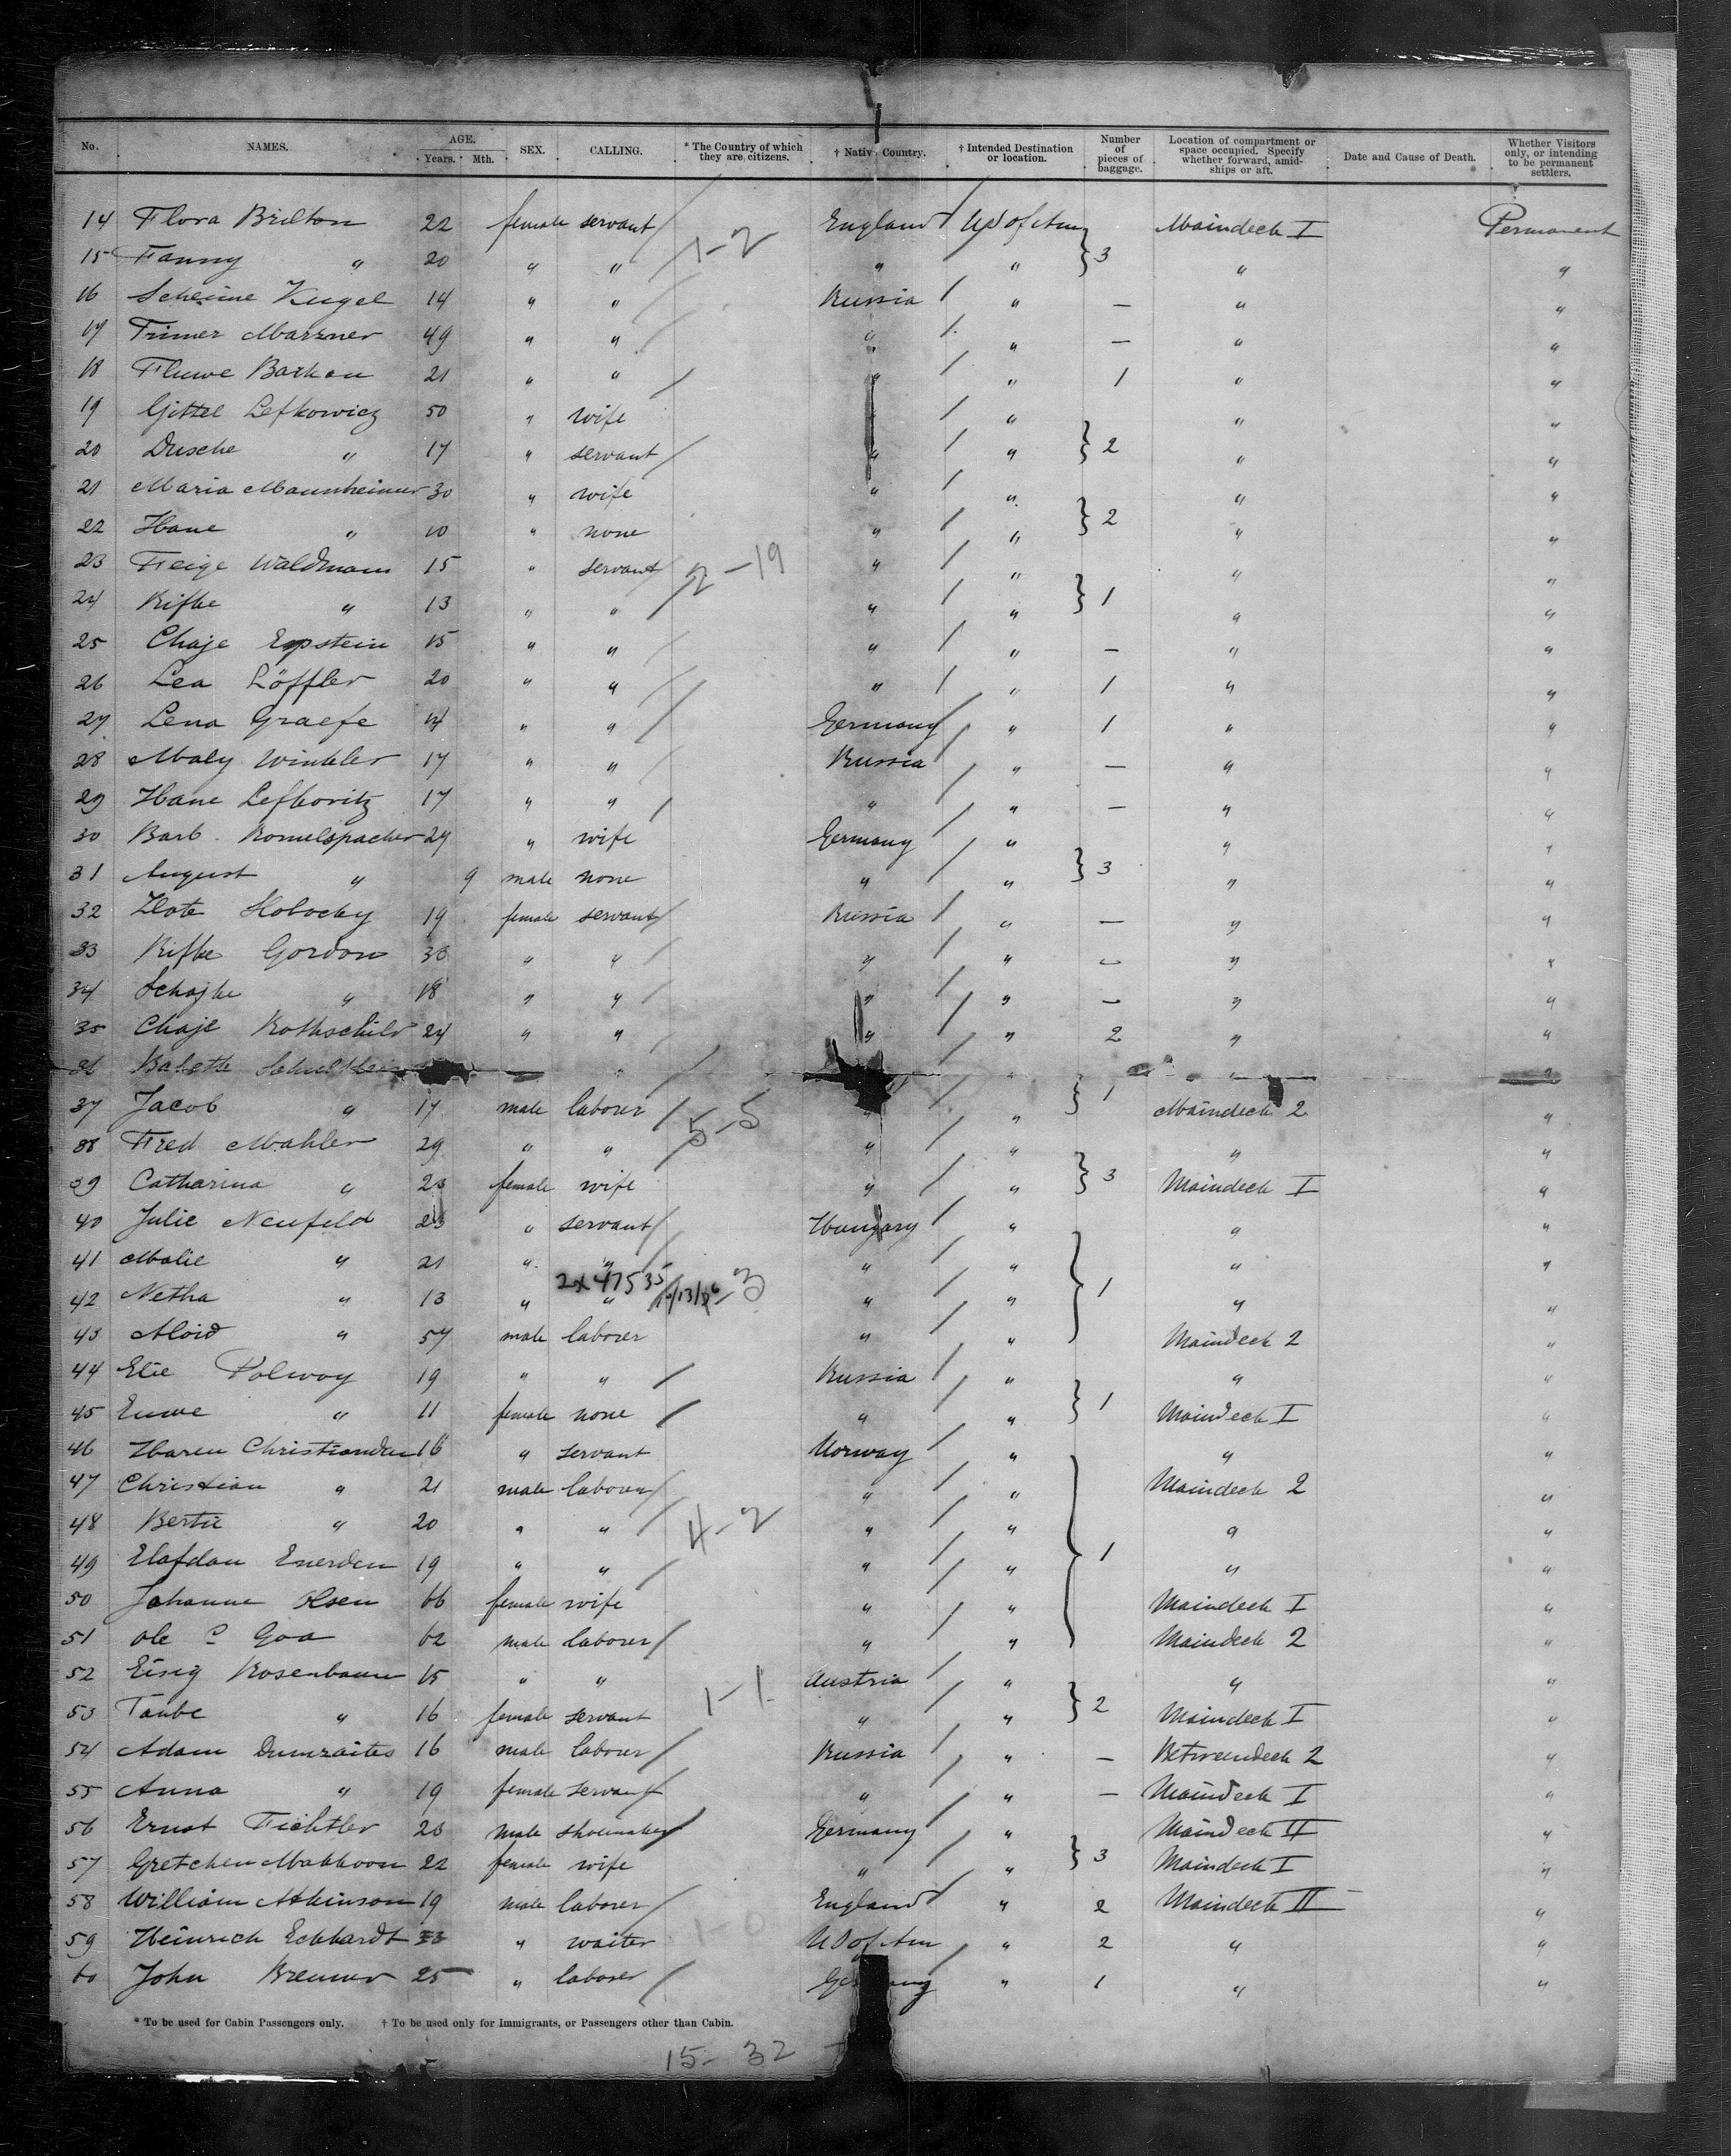 No. NAMES. AGE. Years. Mth. SEX. CALLING. * The Country of which they are citizens. † Native Country. † Intended Destination or location. Number of pieces of baggage. Location of compartment or space occupied. Specify whether forward, amidships or aft. Date and Cause of Death. Whether Visitors only, or intending to be permanent settlers.
14 Flora Brilton 22 female servant England US of Am Maindeck I Permanent
15 Fanny " 20 " " 1-2 " " 3 " "
16 Scheine Kugel 14 " " Russia " — " "
17 Trimer Marzner 49 " " " " — " "
18 Fluwe Barkan 21 " " " " 1 " "
19 Gittel Lefkowicz 50 " wife " " "
20 Dusche " 17 " servant " " 2 " "
21 Maria Mannheimer 30 " wife " " " "
22 Hane " 10 " none " " 2 " "
23 Feige Waldmann 15 " servant 2-19 " " " "
24 Rifke " 13 " " " " 1 " "
25 Chaje Epstein 15 " " " " — " "
26 Lea Löffler 20 " " " " 1 " "
27 Lena Graefe 14 " " Germany " 1 " "
28 Maly Winkler 17 " " Russia " — " "
29 Hane Lefkovitz 17 " " " " — " "
30 Barb. Romelspacher 27 " wife Germany " " "
31 August " 9 male none " " 3 " "
32 Zlote Slobocky 19 female servant Russia " — " "
33 Rifke Gordon 30 " " " " — " "
34 Schajke " 18 " " " " — " "
35 Chaje Rothschild 24 " " " " 2 " "
36 Babette " "
37 Jacob " 17 male laborer 5-5 " " 1 Maindeck 2 "
38 Fred Mahler 29 " " " " " "
39 Catharina " 23 female wife " " 3 Maindeck I "
40 Julie Neufeld 23 " servant Hungary " " "
41 Malie " 21 " " " " " "
2x47535
42 Netha " 13 " " 3 " " 1 " "
43 Aloid " 57 male laborer " " Maindeck 2 "
44 Elie Polwoy 19 " " Russia " " "
45 Euwe " 11 female none " " 1 Maindeck I "
46 Haren Christianden 16 " servant Norway " " "
47 Christian " 21 male laborer " " Maindeck 2 "
48 Bertie " 20 " " 4-2 " " " "
49 Elafdan Enerden 19 " " " " 1 " "
50 Johanne Olsen 66 female wife " " Maindeck I "
51 Ole C Goa 62 male laborer " " Maindeck 2 "
52 Eisig Rosenbaum 15 " " Austria " " "
53 Taube " 16 female servant 1-1 " " 2 Maindeck I "
54 Adam Dumzaites 16 male laborer Russia " — Betweendeck 2 "
55 Anna " 19 female servant " " — Maindeck I "
56 Ernst Fichtler 23 male shoemaker Germany " Maindeck II "
57 Gretchen Makkoon 22 female wife " " 3 Maindeck I "
58 William Atkinson 19 male laborer England " 2 Maindeck II "
59 Heinrich Eckhardt 33 " waiter 1-0 US of Am " 2 " "
60 John Bremer 25 " laborer Germany " 1 " "
* To be used for Cabin Passengers only. † To be used only for Immigrants, or Passengers other than Cabin.
15-32